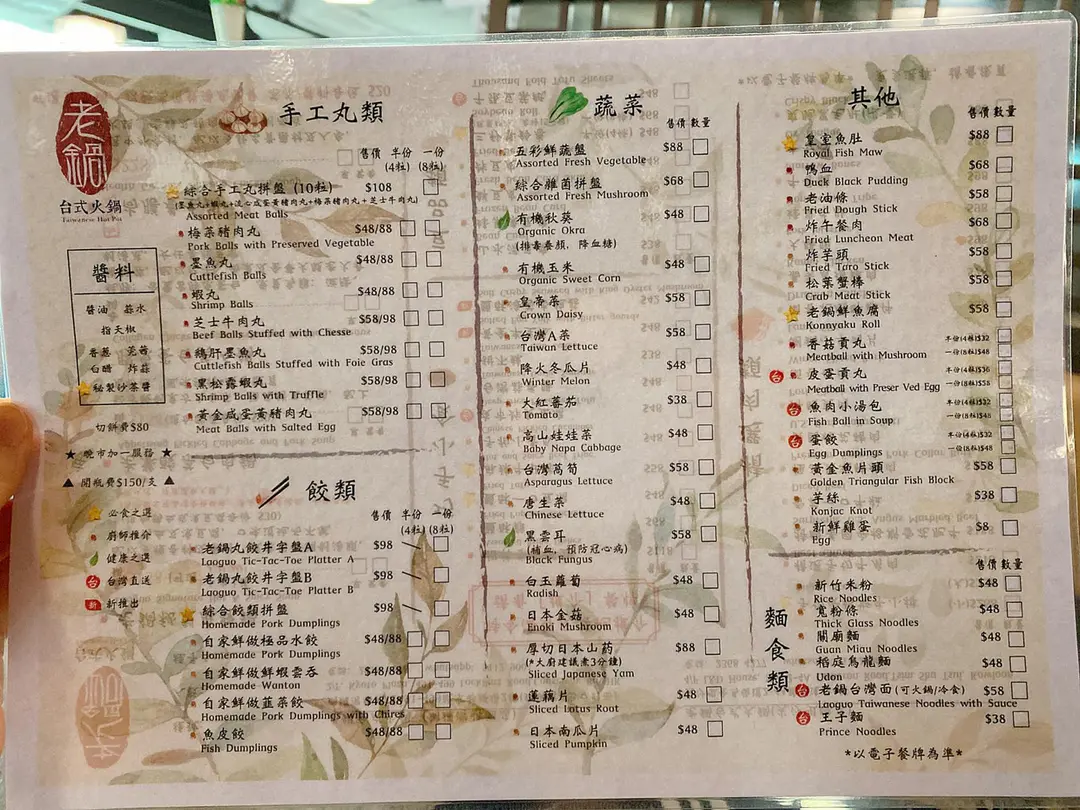 老鍋
台式火鍋
Taiwanese Hot Pot
醬料
醬油 蒜水
指天椒
香蔥 芫茜
白醋 炸蒜
秘製沙茶醬
切餅費$80
★ 晚市加一服務 ★
▲ 開瓶費$150/支 ▲
必食之選
廚師推介
健康之選
台 台灣直送
新 新推出
手工丸類
售價 半份 一份
(4粒) (8粒)
綜合手工丸拼盤 (10粒) $108
Assorted Meat Balls
梅菜豬肉丸 $48/88
Pork Balls with Preserved Vegetable
墨魚丸 $48/88
Cuttlefish Balls
蝦丸 $48/88
Shrimp Balls
芝士牛肉丸 $58/98
Beef Balls Stuffed with Chesse
鵝肝墨魚丸 $58/98
Cuttlefish Balls Stuffed with Foie Gras
黑松露蝦丸 $58/98
Shrimp Balls with Truffle
黃金咸蛋黃豬肉丸 $58/98
Meat Balls with Salted Egg
餃類
售價 半份 一份
(4粒) (8粒)
老鍋丸餃井字盤A $98
Laoguo Tic-Tac-Toe Platter A
老鍋丸餃井字盤B $98
Laoguo Tic-Tac-Toe Platter B
綜合餃類拼盤 $98
Homemade Pork Dumplings
自家鮮做極品水餃 $48/88
Homemade Pork Dumplings
自家鮮做鮮蝦雲吞 $48/88
Homemade Wanton
自家鮮做韮菜餃 $48/88
Homemade Pork Dumplings with Chires
魚皮餃 $48/88
Fish Dumplings
蔬菜
售價 數量
五彩鮮蔬盤 $88
Assorted Fresh Vegetable
綜合雜菌拼盤 $68
Assorted Fresh Mushroom
有機秋葵 $48
Organic Okra
(排毒養顏, 降血糖)
有機玉米 $48
Organic Sweet Corn
皇帝菜 $58
Crown Daisy
台灣A菜 $58
Taiwun Lettuce
降火冬瓜片 $48
Winter Melon
大紅蕃茄 $38
Tomato
高山娃娃菜 $48
Baby Napa Cabbage
台灣萵筍 $58
Asparagus Lettuce
唐生菜 $48
Chinese Lettuce
黑雲耳 $58
(補血, 預防冠心病)
Black Fungus
白玉蘿蔔 $48
Radish
日本金菇 $48
Enoki Mushroom
厚切日本山药 $88
(*大廚建議煮3分鐘)
Sliced Japanese Yam
蓮藕片 $48
Sliced Lotus Root
日本南瓜片 $48
Sliced Pumpkin
其他
售價 數量
皇室魚肚 $88
Royal Fish Maw
鴨血 $68
Duck Black Pudding
老油條 $58
Fried Dough Stick
炸午餐肉 $68
Fried Luncheon Meat
炸芋頭 $58
Fried Taro Stick
松葉蟹棒 $58
Crab Meat Stick
老鍋鮮魚腐 $58
Konnyaku Roll
香菇貢丸 半份(4粒)$32
Meatball with Mushroom 一份(8粒)$48
台 皮蛋貢丸 半份(4粒)$36
Meatball with Preser Ved Egg 一份(8粒)$58
台 魚肉小湯包 半份(4粒)$32
Fish Ball in Soup 一份(8粒)$48
台 蛋餃 半份(4粒)$32
Egg Dumplings 一份(8粒)$48
黃金魚片頭 $58
Golden Triangular Fish Block
芋絲 $38
Konjac Knot
新鮮雞蛋 $8
Egg
麵食類
售價 數量
新竹米粉 $48
Rice Noodles
寬粉條 $48
Thick Glass Noodles
關廟麵 $48
Guan Miau Noodles
稻庭烏龍麵 $48
Udon
台 老鍋台灣面(可火鍋/冷食) $58
Laoguo Taiwanese Noodles with Sauce
台 王子麵 $38
Prince Noodles
*以電子餐牌為準*